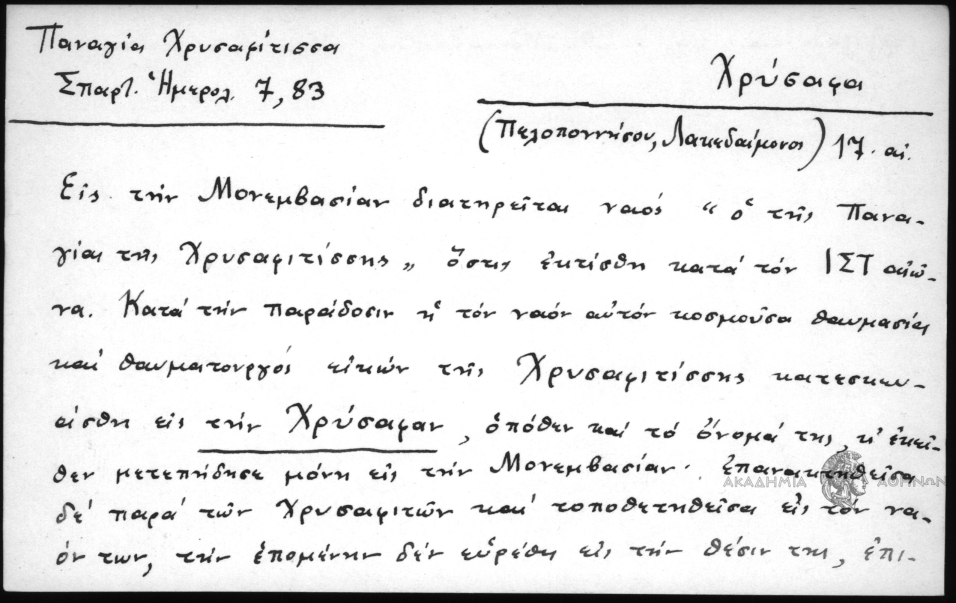 Παναγία Χρυσαφίτισσα
Σπαρτ. Ἡμερολ. 7, 83
Χρύσαφα
(Πελοποννήσου, Λακεδαίμονος) 17. αἰ.
Εἰς τήν Μονεμβασίαν διατηρεῖται ναός "ὁ τῆς Πανα-
γίας τῆς Χρυσαφιτίσσης„ ὅστις ἐκτίσθη κατά τόν ΙΣΤ αἰῶ-
να. Κατά τήν παράδοσιν ἡ τόν ναόν αὐτόν κοσμοῦσα θαυμασία
καί θαυματουργός εἰκών τῆς Χρυσαφιτίσσης κατεσκευ-
άσθη εἰς τήν Χρύσαφαν, ὁπόθεν καί τό ὄνομά της, κ' ἐκεῖ-
θεν μετεπήδησε μόνη εἰς τήν Μονεμβασίαν· ἐπανακτηθεῖσα
δέ παρά τῶν Χρυσαφιτῶν καί τοποθετηθεῖσα εἰς τόν να-
όν των, τήν ἑπομένην δέν εὑρέθη εἰς τήν θέσιν της, ἐπι-
ΑΚΑΔΗΜΙΑ ΑΘΗΝΩΝ